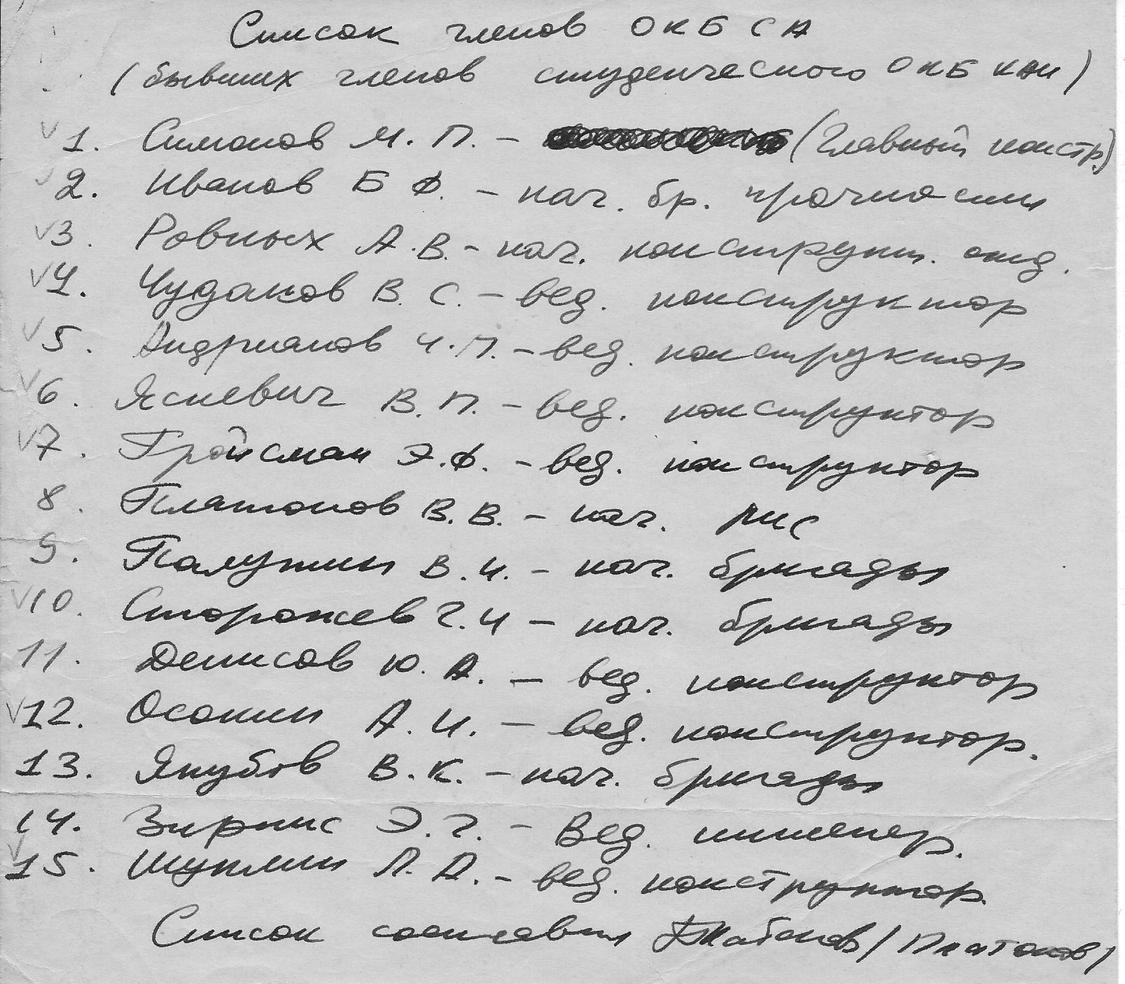 Список членов ОКБ СА
(бывших членов студенческого ОКБ КАИ)
1. Симонов М. П. – (Главный констр)
2. Иванов Б Ф. – нач. бр. прочности
3. Ровных А. В. – нач. конструкт. отд.
4. Чудаков В. С. – вед. конструктор
5. Андрианов Ч. П. – вед. конструктор
6. Ясневич В. П. – вед. конструктор
7. Гройсман Э. Ф. – вед. конструктор
8. Платонов В. В. – нач.
9. В. И. – нач. бригады
10. Сторожев Г. И – нач. бригады
11. Денисов Ю. А. – вед. конструктор
12. Осокин А. И. – вед. конструктор.
13. Якубов В. К. – нач. бригады
14. Зирнис Э. Г. – Вед. инженер.
15. Шуплин Л. А. – вед. конструктор.
Список составил (Платонов)